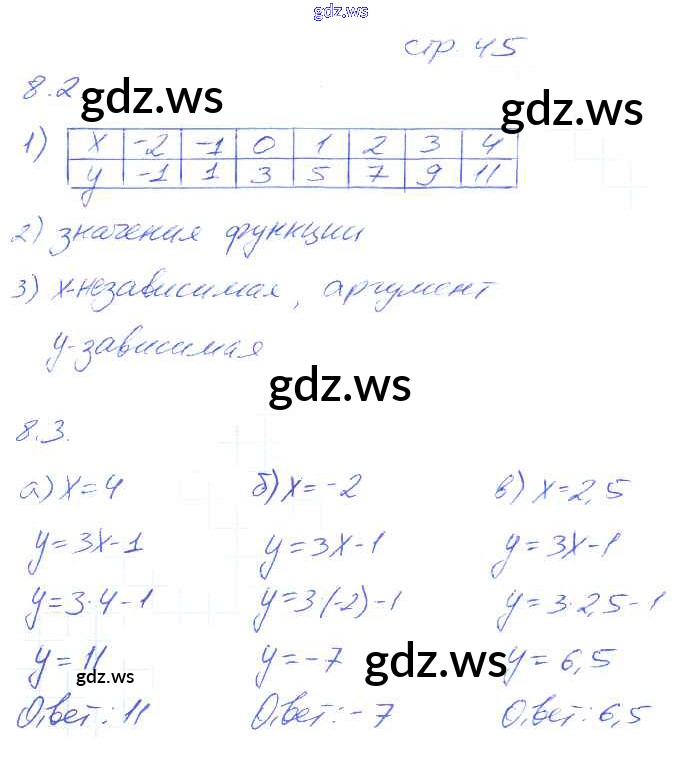 gdz.ws
стр. 45
8.2
gdz.ws
1) x -2 -1 0 1 2 3 4
y -1 1 3 5 7 9 11
2) значения функции
3) x-независимая, аргумент
y-зависимая
gdz.ws
8.3.
а) x=4 б) x=-2 в) x=2,5
y=3x-1 y=3x-1 y=3x-1
y=3·4-1 y=3·(-2)-1 y=3·2,5-1
y=11 y=-7 y=6,5
gdz.ws gdz.ws
Ответ: 11 Ответ: -7 Ответ: 6,5